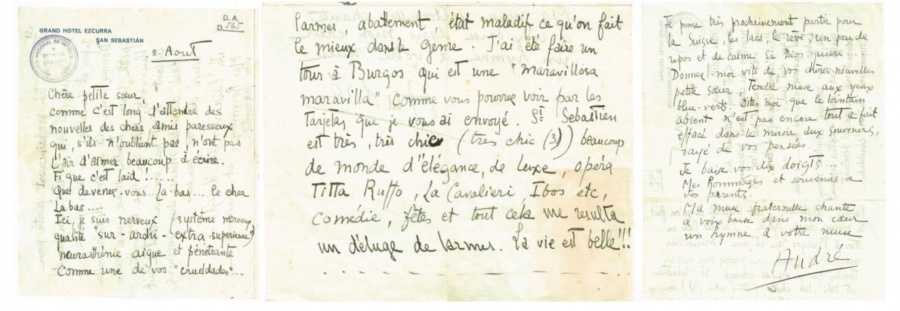 D. A.
D. 265
GRAND HOTEL EZCURRA
SAN SEBASTIÁN
8 Aout
Chère petite sœur,
comme c'est long d'attendre des
nouvelles des chers amis paresseux
qui, s'ils n'oublient pas, n'ont pas
l'air d'aimer beaucoup à écrire.
Fi que c'est laid !......
Que devenez-vous.. La bas.... Le cher
La bas....
Ici, je suis nerveux, système nerveux
qualité "sur-archi-extra-superieure"
neurasthénie aigue et pénétrante
Comme une de vos "crueldades"...
larmes, abattement, état maladif ce qu'on fait
le mieux dans le genre. J'ai été faire un
tour à Burgos qui est une "maravillosa
maravilla" comme vous pourrez voir par les
Tarjetas que je vous ai envoyé. St Sebastien
est très, très chic (tres chic (3)) beaucoup
de monde d'élégance, de luxe, opéra
Titta Ruffo, La Cavalieri, Ibos etc,
comédie, fêtes et tout cela me resulta
un déluge de larmes. La vie est belle!!
Je pense très prochainement partir pour
la Suisse, les lacs, le rêve, un peu de
repos et de calme. Si Dios quiere...
Donnez-moi vite de vos chères nouvelles
petite sœur, tendre muse aux yeux
bleu-verts. Dites moi que le lointain
absent n'est pas encore tout à fait
effacé dans le miroir aux souvenirs,
rayé de vos pensées.
Je baise vos dix doigts...
Mes hommages et souvenirs a
vos parents.
Ma muse fraternelle chante
à voix basse dans mon cœur
un hymne à votre muse
André